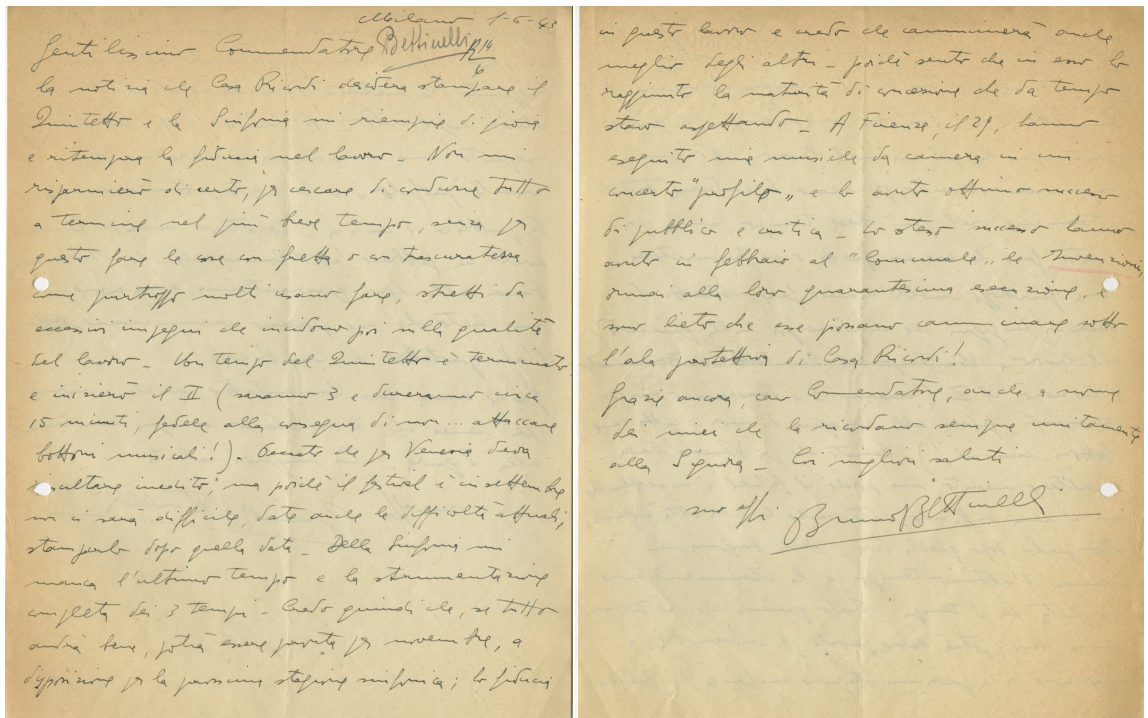 Milano 1-6-43
Gentilissimo Commendatore
Bettinelli R 14
6
la notizia che Casa Ricordi desidera stampare il
Quintetto e la Sinfonia mi riempie di gioia
e ritempra la fiducia nel lavoro - Non mi
risparmierò di certo, per cercare di condurre tutto
a termine nel più breve tempo, senza per
questo fare le cose con fretta o con trascuratezza
come purtroppo molti usano fare, stretti da
eccessivi impegni che incidono poi sulla qualità
del lavoro - Un tempo del Quintetto è terminato
e inizierò il II (saranno 3 e dureranno circa
15 minuti, fedele alla consegna di non... attaccare
bottoni musicali!). Peccato che per Venezia deva
risultare inedito; ma poiché il festival è in settembre
non ci sarà difficile, date anche le difficoltà attuali,
stamparlo dopo quella data - Della Sinfonia mi
manca l'ultimo tempo e la strumentazione
completa dei 3 tempi - Credo quindi che, se tutto
andrà bene, potrà essere pronta per novembre, a
disposizione per la prossima stagione sinfonica; ho fiducia
in questo lavoro e credo che camminerà anche
meglio degli altri - poiché sento che in esso ho
raggiunto la maturità di concezione che da tempo
stavo aspettando - A Firenze, il 29, hanno
eseguito mie musiche da camera in un
concerto "profilo" e ho avuto ottimo successo
di pubblico e critica - Lo stesso successo hanno
avuto in febbraio al "Comunale" le Invenzioni,
ormai alla loro quarantesima esecuzione, e
sono lieto che esse possano camminare sotto
l'ala protettiva di Casa Ricordi!
Grazie ancora, caro Commendatore, anche a nome
dei miei che la ricordano sempre unitamente
alla Signora - Coi migliori saluti
suo aff.
Bruno Bettinelli